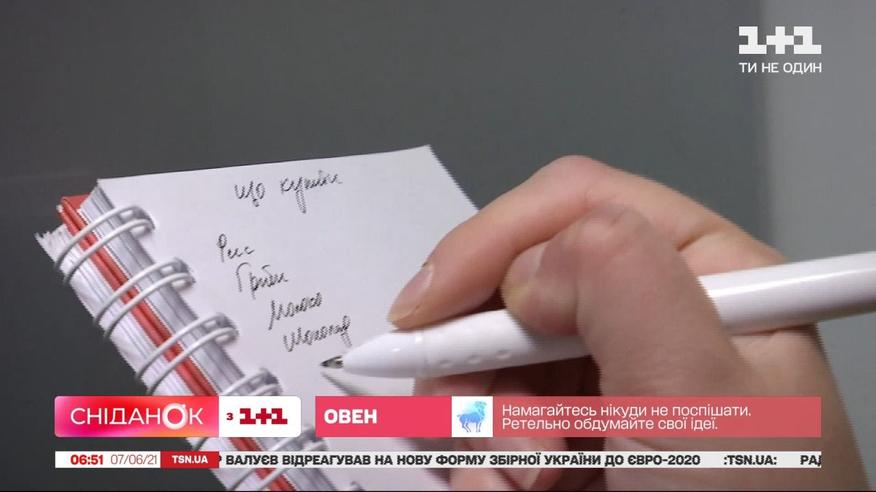 1+1
ТИ НЕ ОДИН
що купити
Рис
Гриби
Молоко
Шоколад
СНІДАНОК З 1+1
ОВЕН
Намагайтесь нікуди не поспішати.
Ретельно обдумайте свої ідеї.
06:51 07/06/21 TSN.UA Р ВАЛУЄВ ВІДРЕАГУВАВ НА НОВУ ФОРМУ ЗБІРНОЇ УКРАЇНИ ДО ЄВРО-2020 :TSN.UA: РАД